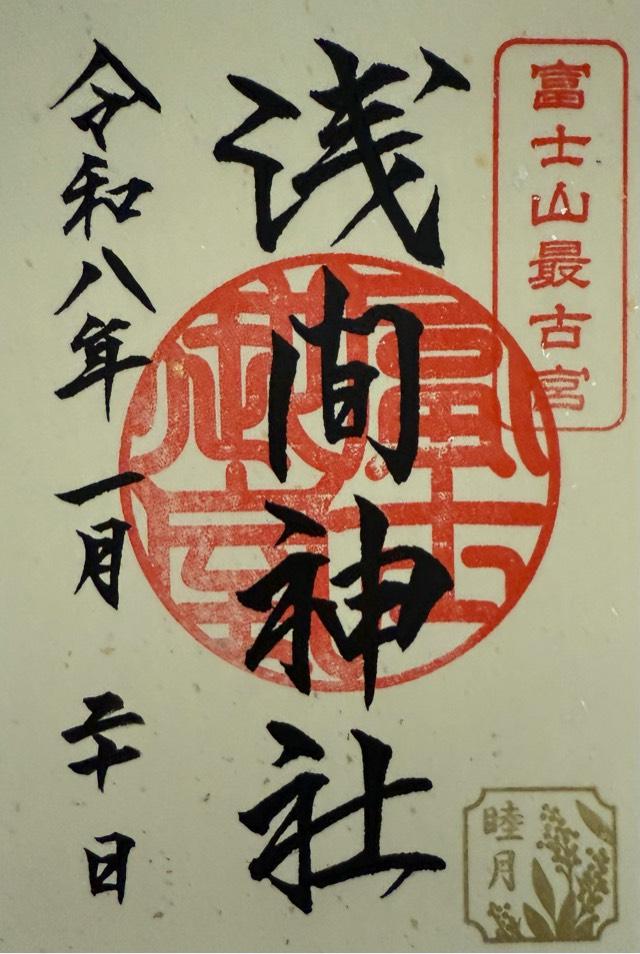 富士山最古宮
浅間神社
令和八年一月二十日
睦月